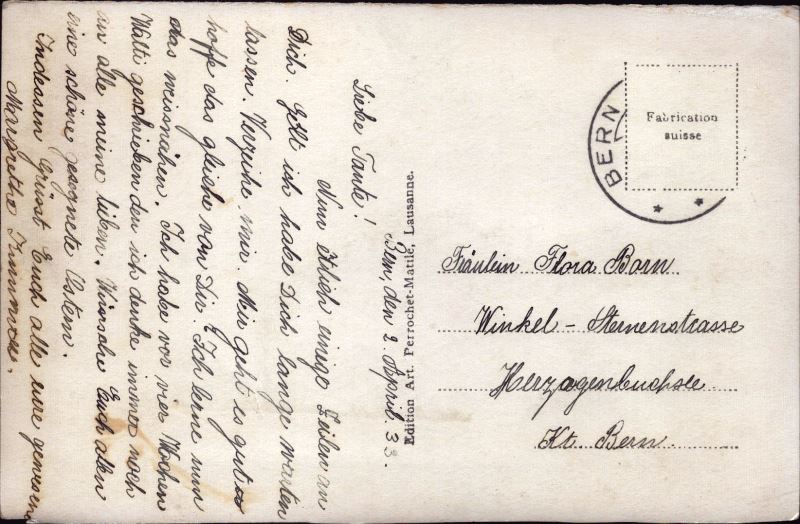 Bern, den 2. April. 33.
Liebe Tante!
Nun endlich einige Zeilen an
Dich. Gelt ich habe Dich lange warten
lassen. Verzeihe mir. Mir geht es gut
hoffe das gleiche von Dir? Ich lerne nun
das weissnähen. Ich habe vor vier Wochen
Walti geschrieben den ich denke immer noch
an alle meine lieben. Wünsche Euch allen
eine schöne gesegnete Ostern.
Indessen Grüsst Euch alle eure gewesene
Margrethe
Edition Art. Perrochet-Matile, Lausanne.
BERN
Fabrication
suisse
Fräulein Flora Born
Winkel - Sternenstrasse
Herzogenbuchsee
Kt. Bern.